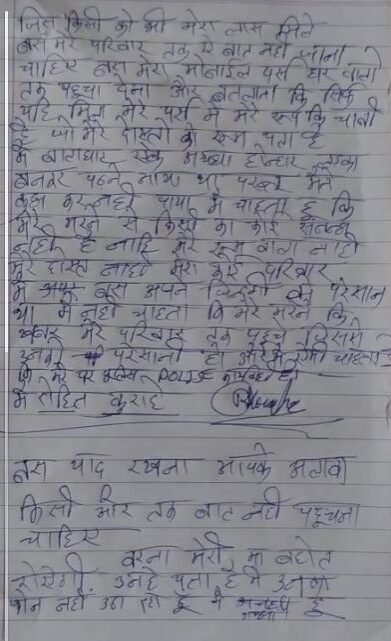 जिस किसी को भी मेरा लास मिले
बस मेरे परिवार तक ये बात नही जाना
चाहिए बस मेरा मोबाईल पर्स घर वालो
तक पहुचा देना और बतलाना कि सिर्फ
यहि मिला मेरे पर्स मे मेरे रूम कि चाबी
है जो मेरे दोस्तो को रूम पता है
मे एक अच्छा होनहार लड़का
बनकर पढने आया था परन्तु मैने
कुछ कर नही पाया मे चाहता हू कि
मेरे मरने से किसी का कोई संबन्ध
नही है नाहि मेरे रूम वाला नाही
मेरे दोस्त नाही मेरा कोई परिवार
मे बस अपने जिन्दगी से परेसान
था मे नही चाहता कि मेरे मरने कि
खबर मेरे परिवार तक पहुचे जिससे
उनको परेसानी हो और मे नही चाहता
कि मेरे घर POLISE
मे रोहित
बस याद रखना आपके अलावा
किसी और तक बात नही पहूचना
चाहिए
वरना मेरी मा बहोत
रोयेगी उनहे पता है मे उनका
फोन नही उठा रहा हू मे हू